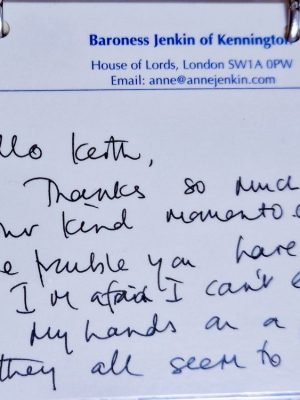 Baroness Jenkin of Kennington
House of Lords, London SW1A 0PW
Email: anne@annejenkin.com
llo Keith,
Thanks so much
ur kind momento
e trouble you have
I'm afraid I can't
my hands on a
they all seem to